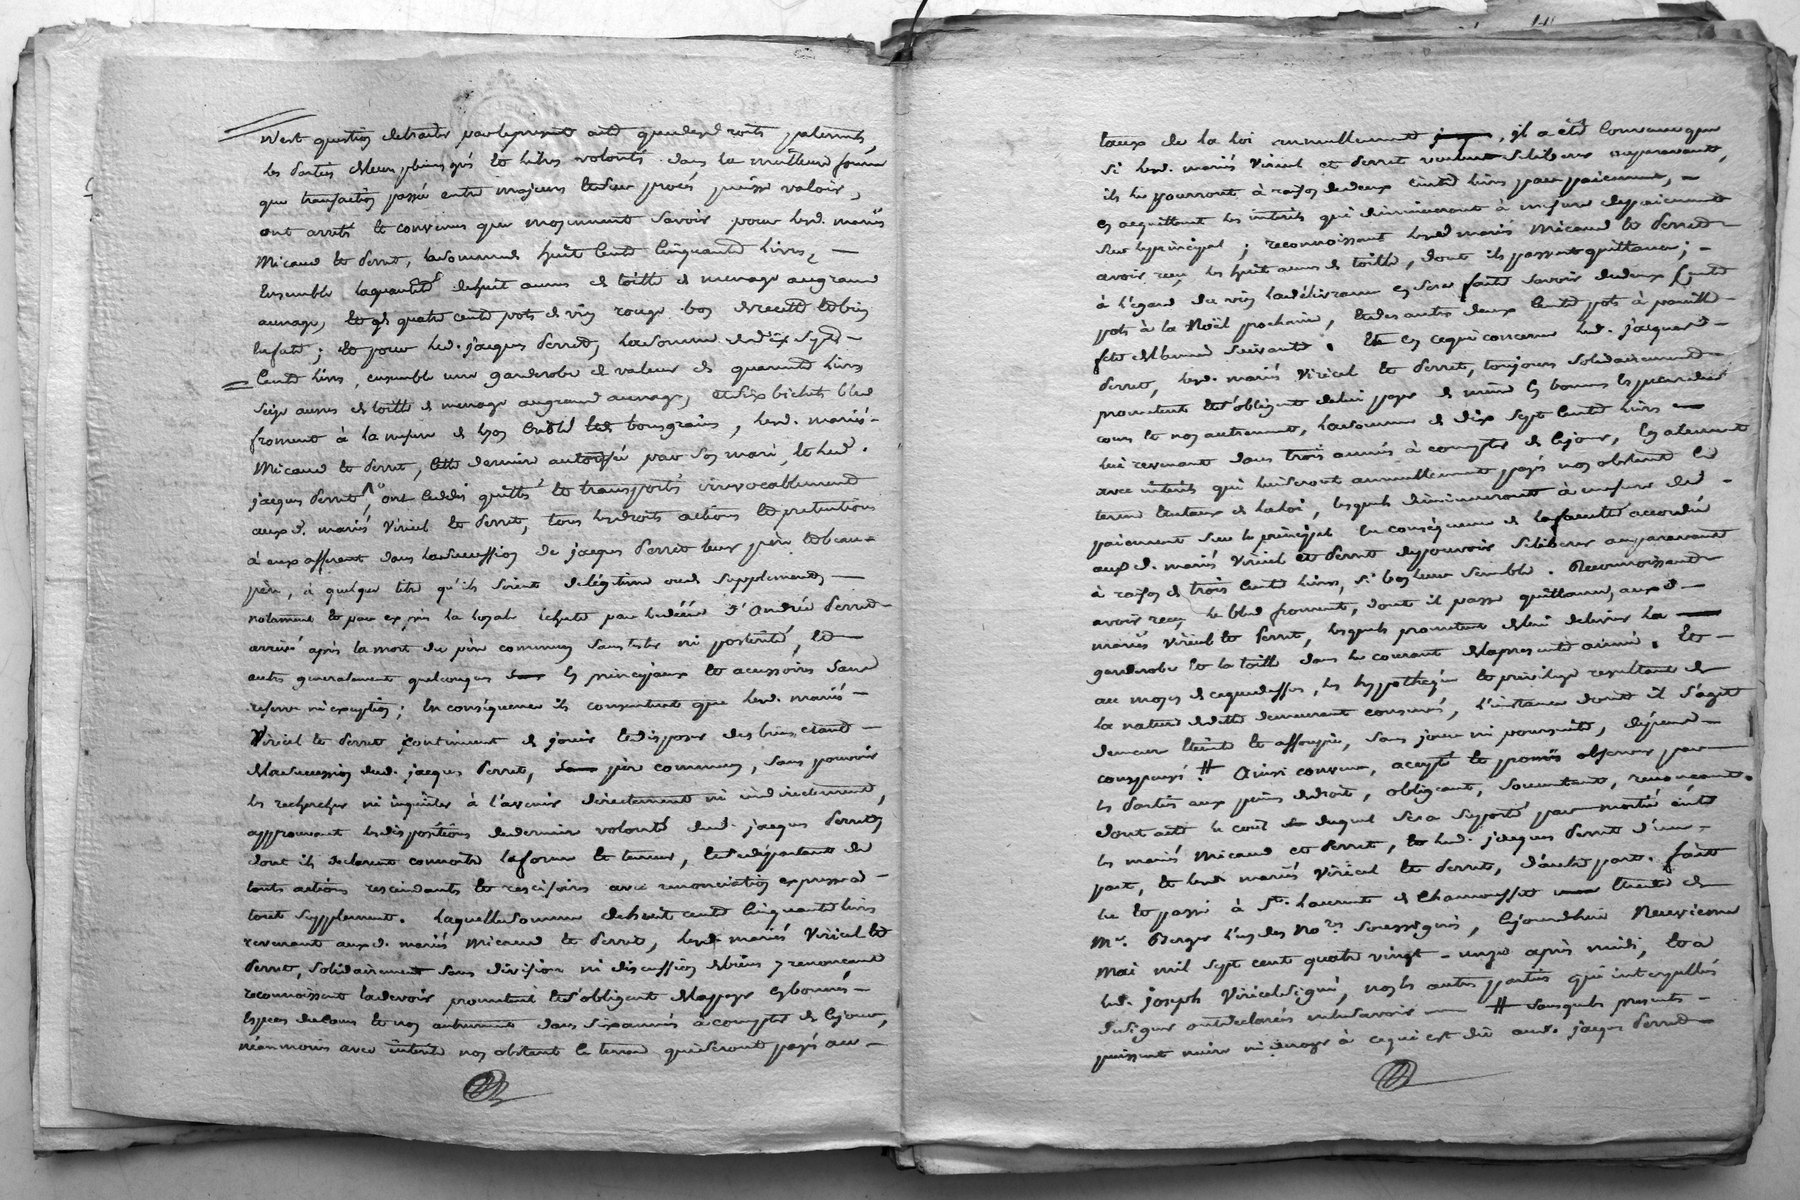 n'est question de traiter par le present acte que desd. droits paternels
les parties de leur plein gré et libre volonté dans la meilleure forme
que transaction passée entre majeurs et sur procès puisse valoir,
ont arrêté et convenus que moyennant savoir pour lesd. mariés
Micaud et Perret, la somme de huit cent cinquante livres, —
ensemble la quantité de huit aunes de toille de menage au grand
aunage, et de quatre cent pots de vin rouge bon de recette et bien
; et pour led. jacques Perret, la somme de dix sept —
cents livres, ensemble une garderobe de valeur de quarante livres
seize aunes de toille de menage au grand aunage, et six bichets bled
froment à la mesure de Lyon bons grains, lesd. mariés —
Micaud et Perret, cette derniere autorisée par son mari, et led.
jacques Perret, ont cedés quittés et transportés irrevocablement
auxd. mariés Viricel et Perret, tous les droits actions et pretentions
à eux afferent dans la succession de jacques Perret leur père et beau-
père, à quelque titre qu'ils soient de légitime ou de supplement, —
notament et par exprès la loyale échute par le décés d'André Perret —
arrivé après la mort du père commun sans tester ni postérité, et —
autres generalement quelconques en principaux et accessoires sans
reserve ni exception; en conséquence ils consentent que lesd. mariés —
Viricel et Perret, continuent de jouir et disposer des biens étant —
de la succession dud. jacques Perret, père commun, sans pouvoir
les rechercher ni inquiéter à l'avenir directement ni indirectement,
approuvant les dispositions de derniere volonté dud. jacques Perret,
dont ils declarent connoitre la forme et teneur, et se départant de
touts actions rescindants et rescisoires avec renonciation expresse à —
tout supplement. Laquelle somme de huit cent cinquante livres
revenant auxd. mariés Micaud et Perret, lesd. mariés Viricel et
Perret, solidairement sans division ni discussion de biens y renonçant
reconnoissent la devoir promettent et s'obligent de la payer en bonnes —
especes de cours et non autrement dans six années à compter de ce jour,
néanmoins avec intérêts non obstant le terme qui seront payés au —
taux de la loi annuellement, il a été convenu que
si lesd. mariés Viricel et Perret veulent se liberer auparavant,
ils le pourront à raison de deux cents livres par paiement, —
en acquittant les intérêts qui diminueront à mesure des paiements
sur le principal; reconnoissant lesd. mariés Micaud et Perret —
avoir reçu les huit aunes de toille, dont ils passent quittance; —
à l'égard du vin la délivrance en sera faite savoir de deux cents
pots à la Noël prochaine, et des autres deux cents pots à pareille —
fête de l'année suivante. Et en ce qui concerne led. jacques —
Perret, lesd. mariés Viricel et Perret, toujours solidairement —
promettent et s'obligent de lui payer de même en bonnes especes de
cours et non autrement, la somme de dix sept cents livres —
lui revenant dans trois années à compter de ce jour, egalement
avec intérêts qui lui seront annuellement payés non obstant le
terme et au taux de la loi, lesquels diminueront à mesure de —
paiement sur le principal en conséquence de la faculté accordée
auxd. mariés Viricel et Perret de pouvoir se liberer auparavant
à raison de trois cents livres, si bon leur semble. Reconnoissant —
avoir reçu le bled froment, dont il passe quittance auxd. —
mariés Viricel et Perret, lesquels promettent de lui delivrer la —
garderobe et la toille dans le courant de la presente année. Et —
au moyen de ce que dessus, les hypothèques et privileges resultants de
la nature de dette demeurant conservés, l'instance dont il s'agit
demeure éteinte et assoupie, sans jour ni poursuite, dépens —
compensés # Ainsi convenu, accepté et promis observer par —
les parties aux peines de droit, obligeant, soumettant, renonçant.
dont acte le cout duquel sera supporté par moitié entre
les mariés Micaud et Perret, et led. jacques Perret d'une —
part, et lesd. mariés Viricel et Perret, d'autre part. fait
lu et passé à St. Laurent de Chamousset etude de
Me. Berger l'un des Nores soussignés, cejourdhui Neuvieme
Mai mil sept cent quatre vingt-onze après midi, et a
led. Joseph Viricel signé, non les autres parties qui interpellés
de signer ont déclarés ne le savoir — # sans que les presentes —
puissent nuire ni deroger à ce qui est dû aud. jacques Perret —